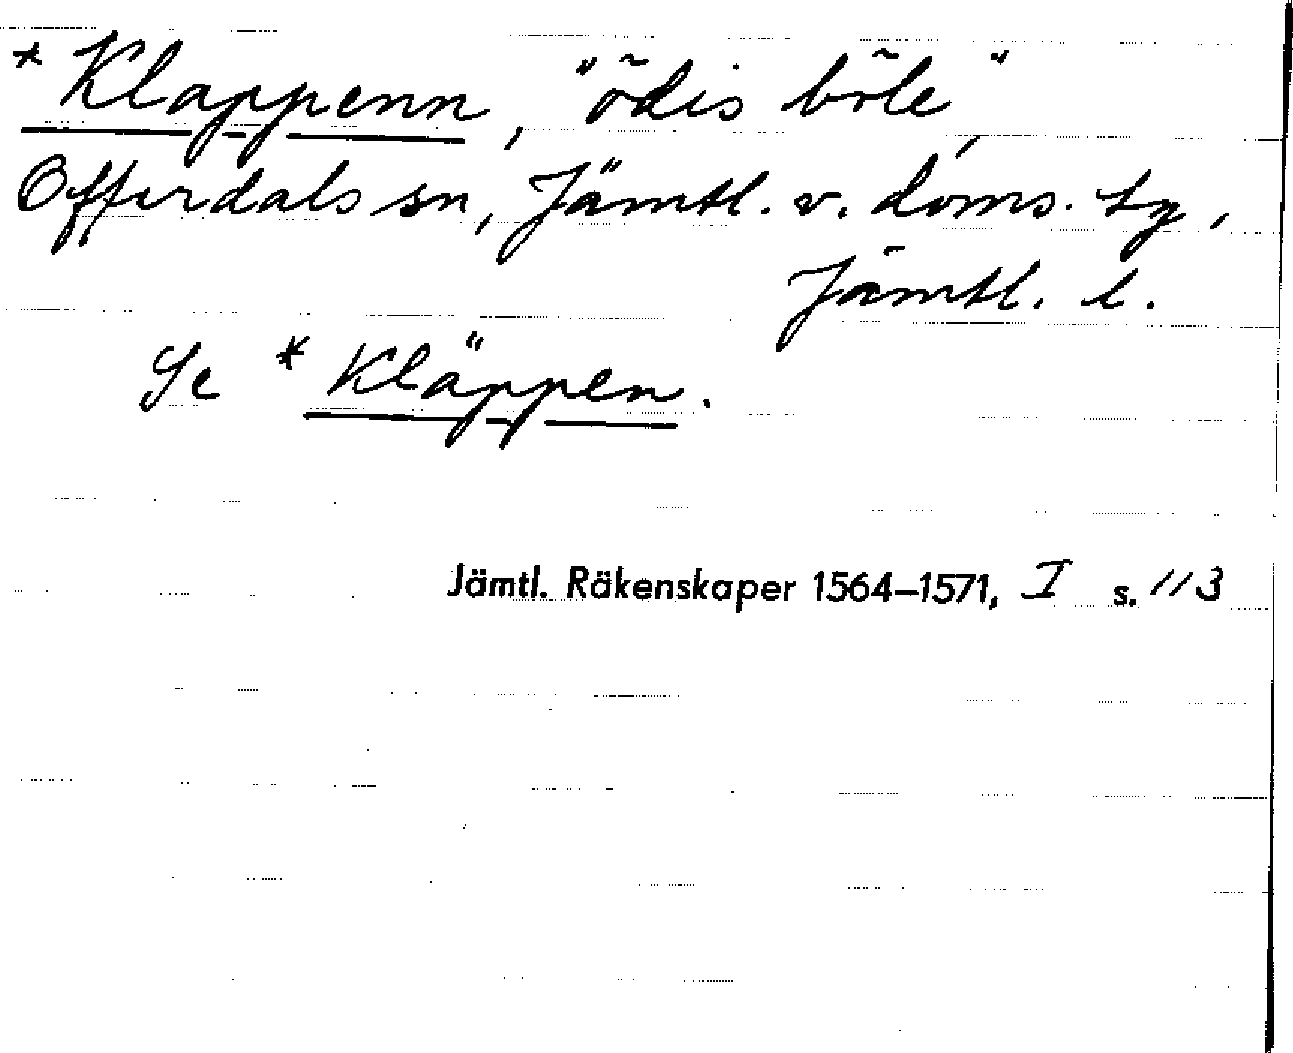 * Klappenn, "ödis böle",
Offerdals sn, Jämtl. v. doms. tg,
Jämtl. l.
Se * Kläppen.
Jämtl. Räkenskaper 1564–1571, I s. 113